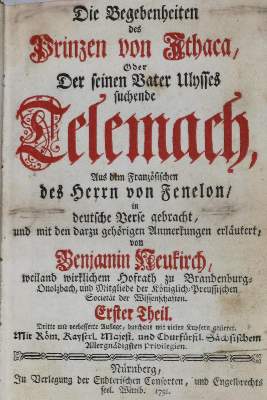 Die Begebenheiten
des
Prinzen von Ithaca,
Oder
Der seinen Vater Ulysses
suchende
Telemach,
Aus dem Französischen
des Herrn von Fenelon/
in
deutsche Verse gebracht,
und mit den darzu gehörigen Anmerkungen erläutert,
von
Benjamin Neukirch,
weiland wirklichem Hofrath zu Brandenburg-
Onolzbach, und Mitgliede der Königlich-Preussischen
Societät der Wissenschaften.
Erster Theil.
Dritte und verbesserte Auflage, durchaus mit vielen Kupfern gezieret.
Mit Röm. Kayserl. Majest. und Churfürstl. Sächsischem
Allergnädigsten Privilegien.
Nürnberg,
In Verlegung der Endterischen Consorten, und Engelbrechts
seel. Wittib. 1751.